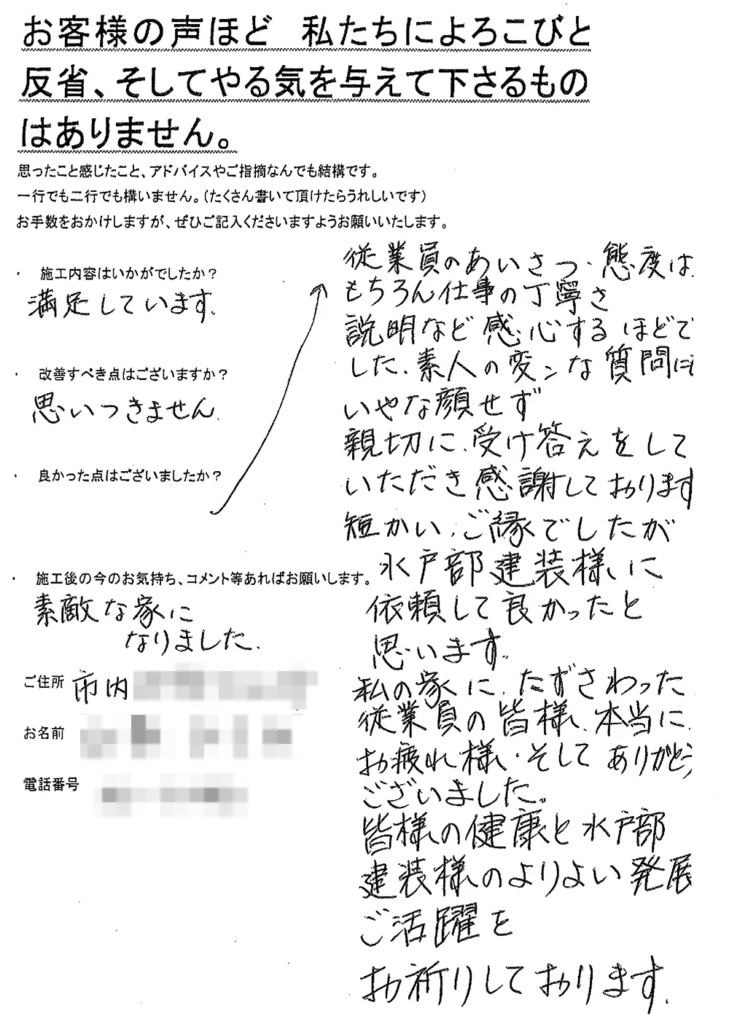 お客様の声ほど 私たちによろこびと
反省、そしてやる気を与えて下さるもの
はありません。
思ったこと感じたこと、アドバイスやご指摘なんでも結構です。
一行でも二行でも構いません。(たくさん書いて頂けたらうれしいです)
お手数をおかけしますが、ぜひご記入くださいますようお願いいたします。
・ 施工内容はいかがでしたか?
満足しています。
・ 改善すべき点はございますか?
思いつきません。
・ 良かった点はございましたか?
従業員のあいさつ・態度は
もちろん仕事の丁寧さ
説明など感心するほどで
した。素人の変ンな質問に
いやな顔せず
親切に、受け答えをして
いただき感謝しております
短かい、ご縁でしたが
水戸部建装様に
依頼して良かったと
思います。
私の家に、たずさわった
従業員の皆様、本当に
お疲れ様・そしてありがとう
ございました。
皆様の健康と水戸部
建装様のよりよい発展
ご活躍を
お祈りしております。
・ 施工後の今のお気持ち、コメント等あればお願いします。
素敵な家に
なりました。
ご住所 市内
お名前
電話番号